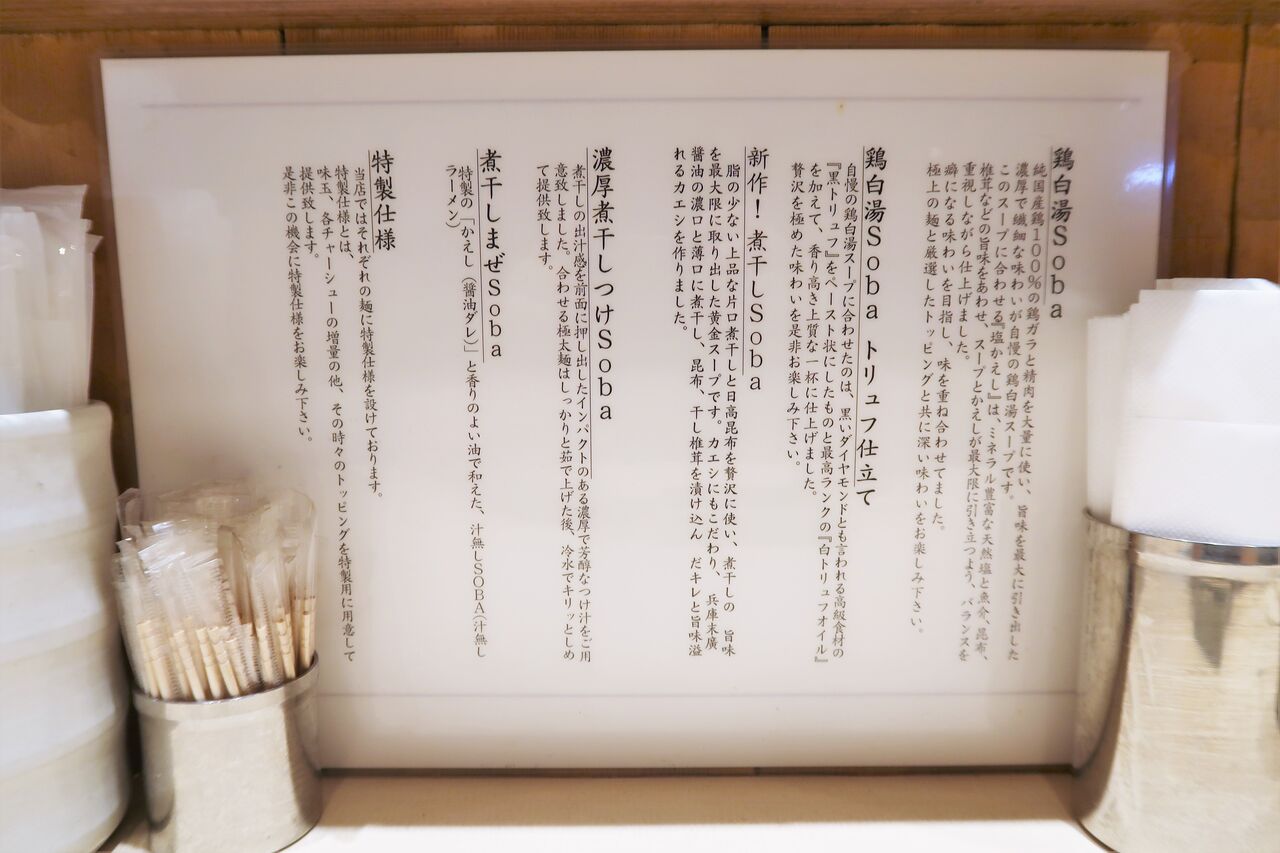 鶏白湯Soba
純国産鶏100%の鶏ガラと精肉を大量に使い、旨味を最大に引き出した
濃厚で繊細な味わいが自慢の鶏白湯スープです。
このスープに合わせる『塩かえし』は、ミネラル豊富な天然塩と魚介、昆布、
椎茸などの旨味をあわせ、スープとかえしが最大限に引き立つよう、バランスを
重視しながら仕上げました。
癖になる味わいを目指し、味を重ね合わせてました。
極上の麺と厳選したトッピングと共に深い味わいをお楽しみ下さい。
鶏白湯Soba トリュフ仕立て
自慢の鶏白湯スープに合わせたのは、黒いダイヤモンドとも言われる高級食材の
『黒トリュフ』をペースト状にしたものと最高ランクの『白トリュフオイル』
を加えて、香り高き上質な一杯に仕上げました。
贅沢を極めた味わいを是非お楽しみ下さい。
新作！煮干しSoba
脂の少ない上品な片口煮干しと日高昆布を贅沢に使い、煮干しの 旨味
を最大限に取り出した黄金スープです。カエシにもこだわり、 兵庫末廣
醤油の濃口と薄口に煮干し、昆布、干し椎茸を漬け込ん だキレと旨味溢
れるカエシを作りました。
濃厚煮干しつけSoba
煮干しの出汁感を前面に押し出したインパクトのある濃厚で芳醇なつけ汁をご用
意致しました。合わせる極太麺はしっかりと茹で上げた後、冷水でキリッとしめ
て提供致します。
煮干しまぜSoba
特製の「かえし（醤油ダレ）」と香りのよい油で和えた、汁無しSOBA（汁無し
ラーメン）
特製仕様
当店ではそれぞれの麺に特製仕様を設けております。
特製仕様とは、
味玉、各チャーシューの増量の他、その時々のトッピングを特製用に用意して
提供致します。
是非この機会に特製仕様をお楽しみ下さい。